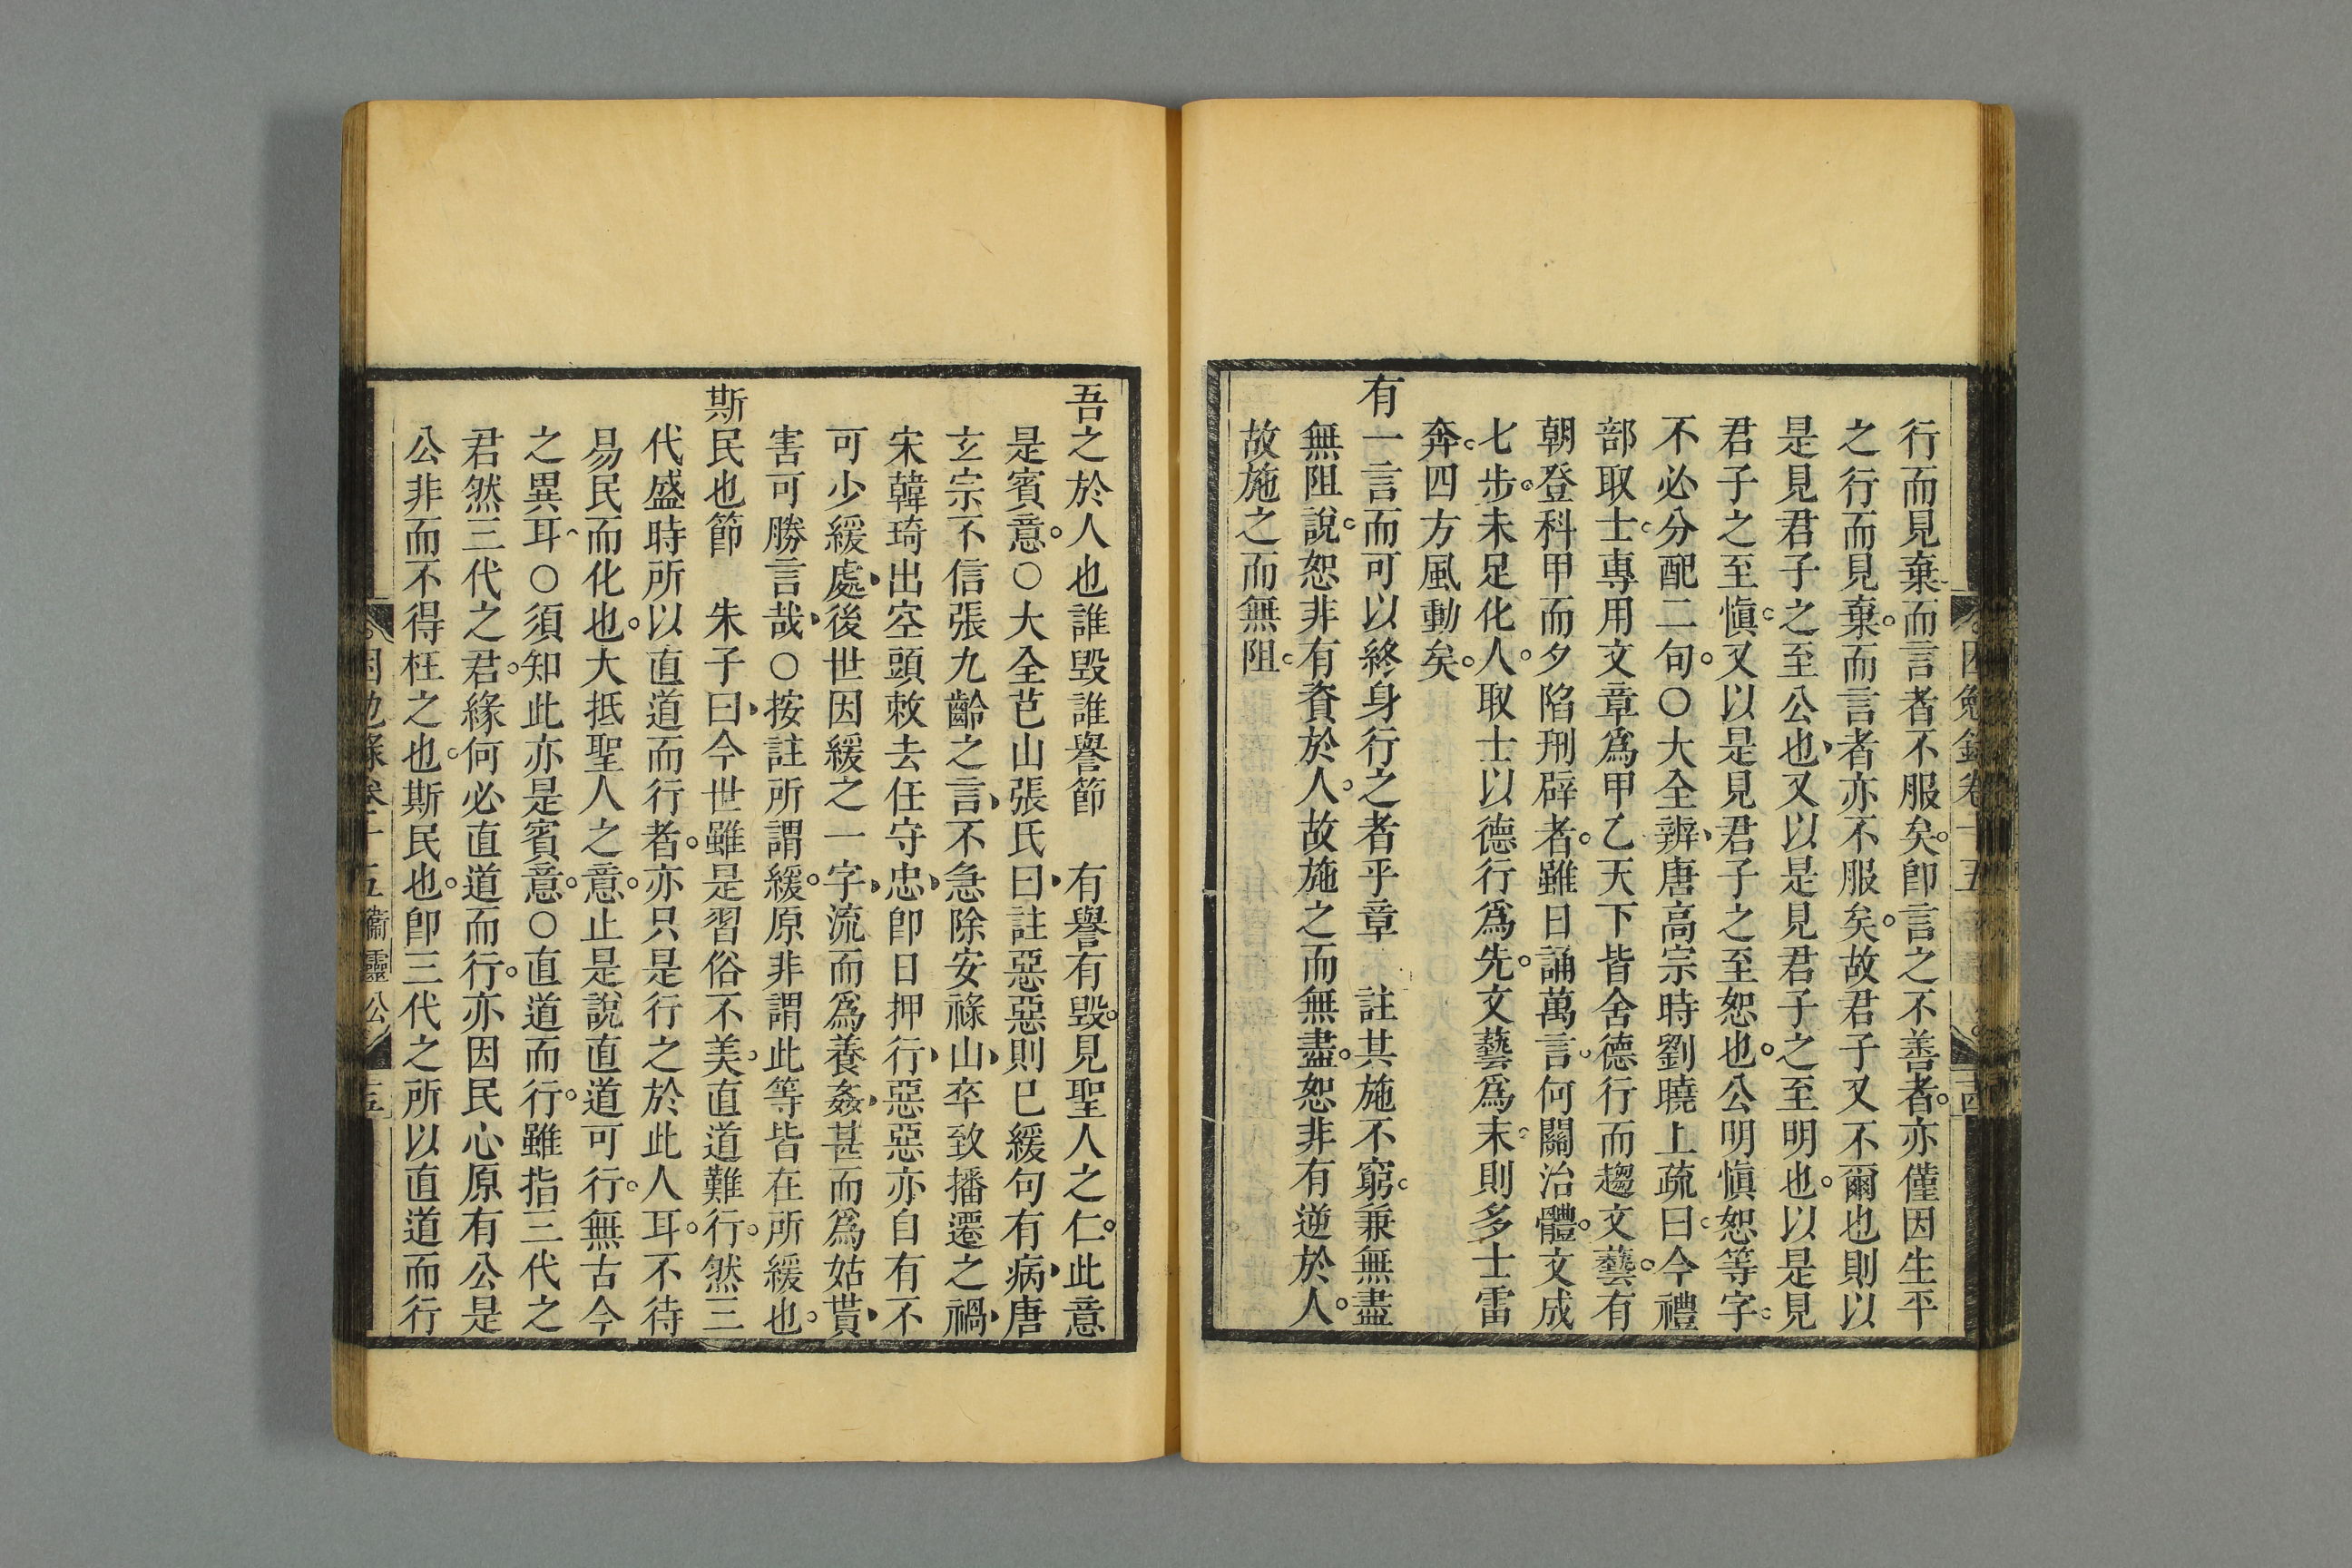 行而見棄而言者不服矣。卽言之不善者。亦僅因生平
之行而見棄。而言者亦不服矣。故君子又不爾也則以
是見君子之至公也、又以是見君子之至明也。以是見
君子之至愼。又以是見君子之至恕也。公明愼恕等字。
不必分配二句。○大全辨、唐高宗時劉曉上疏曰。今禮
部取士。專用文章爲甲乙天下皆舍德行而趨文藝。有
朝登科甲而夕陷刑辟者。雖日誦萬言。何關治體。文成
七步。未足化人。取士以德行爲先。文藝爲末。則多士雷
奔。四方風動矣。
有一言而可以終身行之者乎章 註其施不窮。兼無盡
無阻說。恕非有資於人。故施之而無盡。恕非有逆於人。
故施之而無阻。
吾之於人也誰毀誰譽節 有譽有毀。見聖人之仁。此意
是賓意。○大全芑山張氏曰、註惡惡則已緩句有病、唐
玄宗不信張九齡之言、不急除安祿山、卒致播遷之禍、
宋韓琦出空頭敕去任守忠、卽日押行、惡惡亦自有不
可少緩處、後世因緩之一字、流而爲養姦、甚而爲姑貰、
害可勝言哉、○按註所謂緩。原非謂此等皆在所緩也。
斯民也節 朱子曰、今世雖是習俗不美。直道難行。然三
代盛時所以直道而行者。亦只是行之於此人耳。不待
易民而化也。大抵聖人之意。止是說直道可行。無古今
之異耳。○須知此亦是賓意。○直道而行。雖指三代之
君然三代之君。緣何必直道而行。亦因民心原有公是
公非而不得枉之也。斯民也。卽三代之所以直道而行